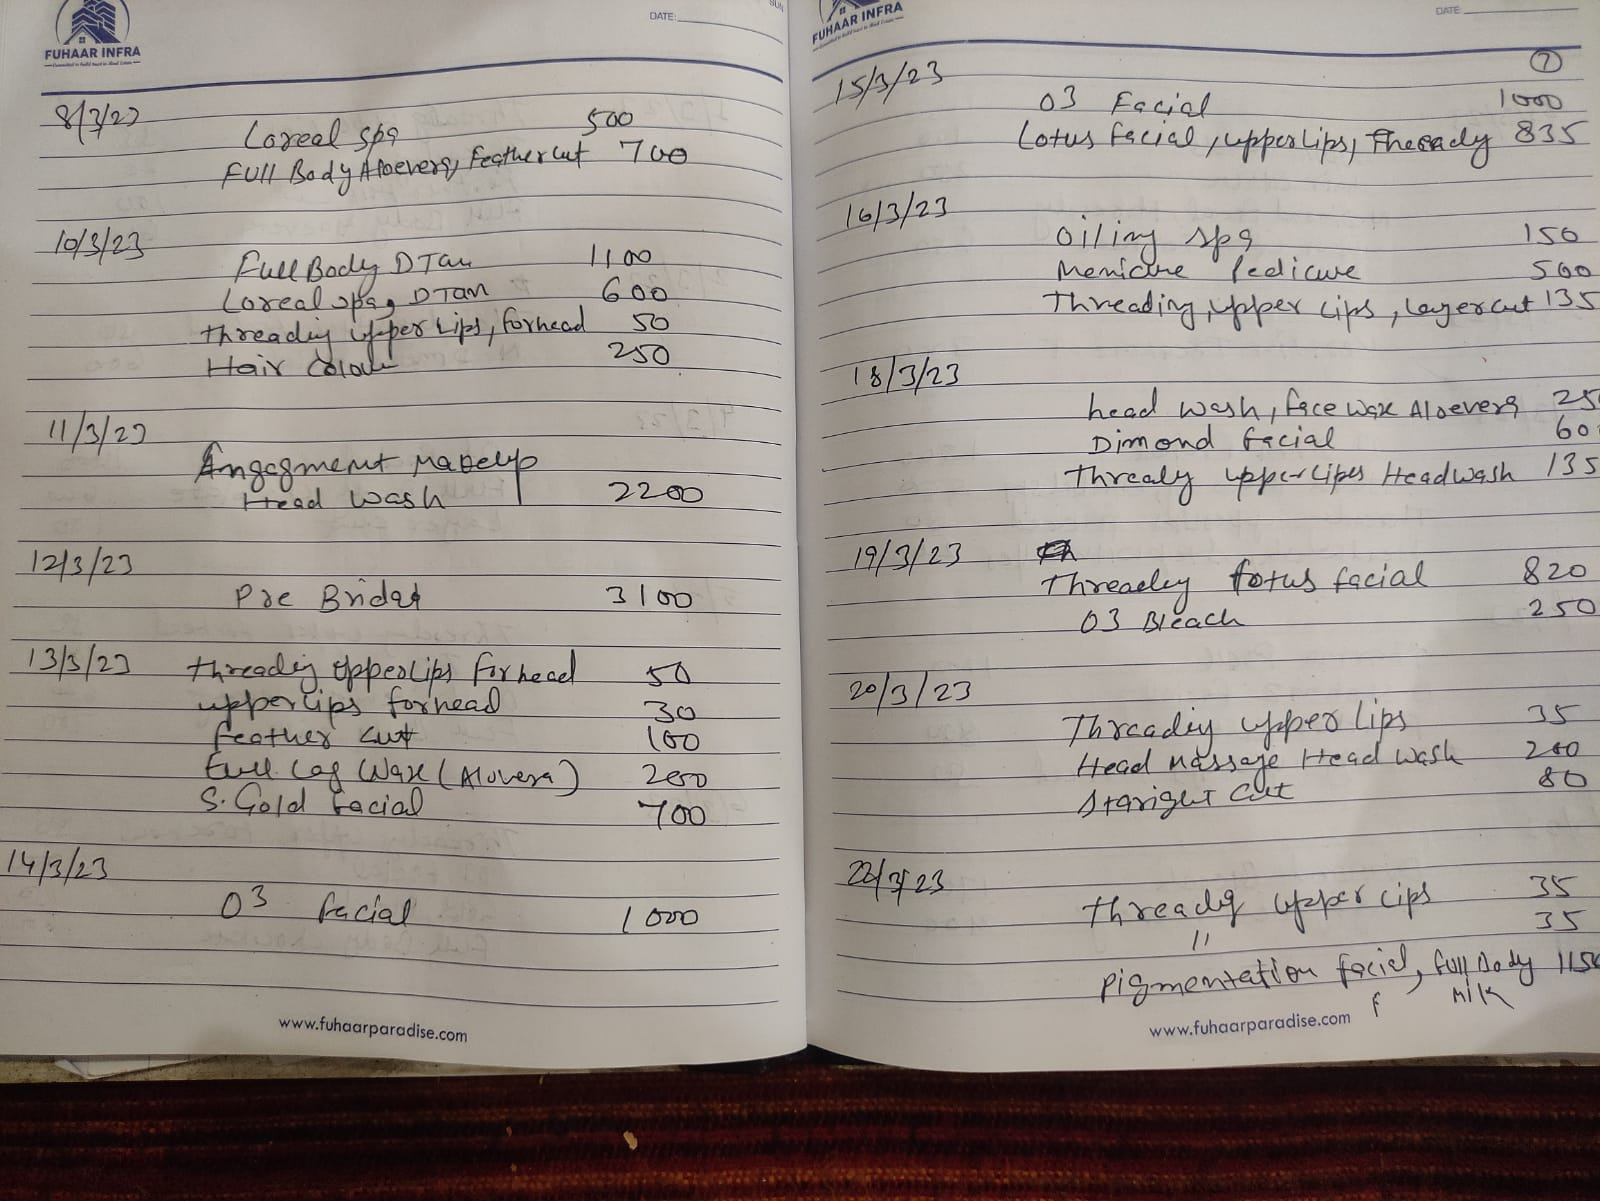 FUHAAR INFRA
DATE:
8/3/23
Loreal spa 500
Full Body Aloevera, Feather cut 700
10/3/23
Full Body D Tan 1100
Loreal spa, D Tan 600
threadig upper Lips, forhead 50
Hair Colour 250
11/3/23
Angagment Makeup
Head Wash 2200
12/3/23
Pre Bridal 3100
13/3/23 threadig upperLips forhead 50
upperlips forhead 30
feather cut 100
Full Leg Wax (Aluvera) 200
S. Gold facial 700
14/3/23
O3 facial 1000
www.fuhaarparadise.com
SUN
FUHAAR INFRA
DATE:
7
15/3/23
O3 Facial 1000
Lotus facial, upperlips, Thready 835
16/3/23
Oiling spa 150
Menicure Pedicure 500
Threading, upper Lips, layercut 135
18/3/23
head wash, face wax Aloevera 25
Dimond facial 60
Thready upperlipes Headwash 135
19/3/23
Threadig lotus facial 820
O3 Bleach 250
20/3/23
Threadig upper lips 35
Head Massage Head wash 200
Staright Cut 80
22/3/23
threadig upper lips 35
" 35
Pigmentation facial, full Body 115
F Milk
www.fuhaarparadise.com